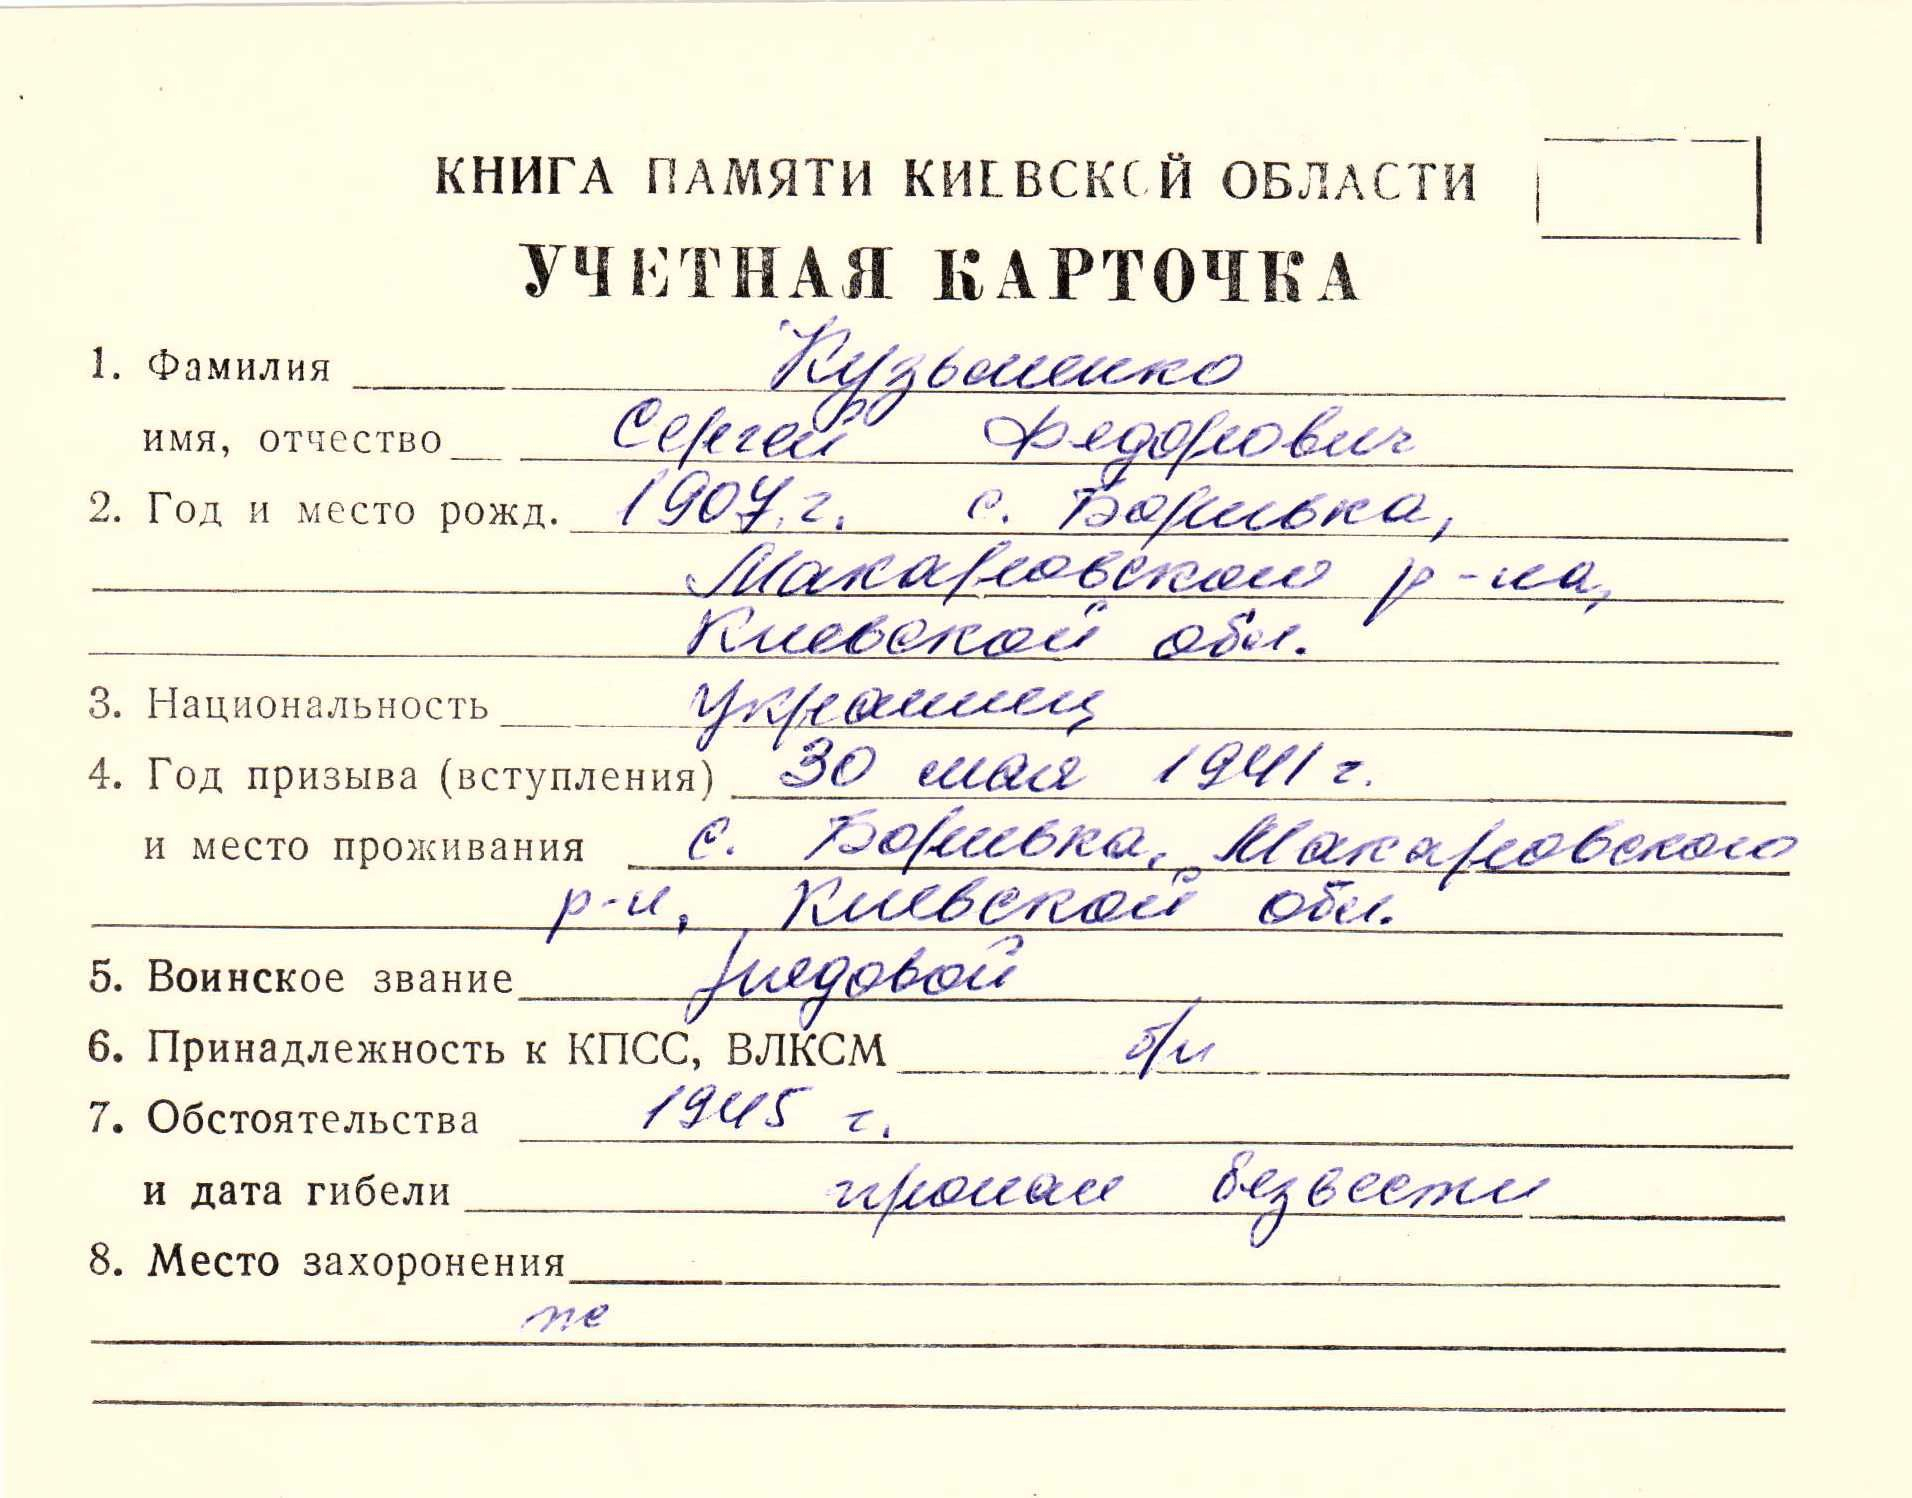 КНИГА ПАМЯТИ КИЕВСКОЙ ОБЛАСТИ
УЧЕТНАЯ КАРТОЧКА
1. Фамилия Кузьменко
имя, отчество Сергей Федорович
2. Год и место рожд. 1907 г. с. Боривка,
Макаровского р-на,
Киевской обл.
3. Национальность украинец
4. Год призыва (вступления) 30 мая 1941 г.
и место проживания с. Боривка, Макаровского
р-н, Киевской обл.
5. Воинское звание рядовой
6. Принадлежность к КПСС, ВЛКСМ б/п
7. Обстоятельства 1945 г.
и дата гибели пропал безвести
8. Место захоронения